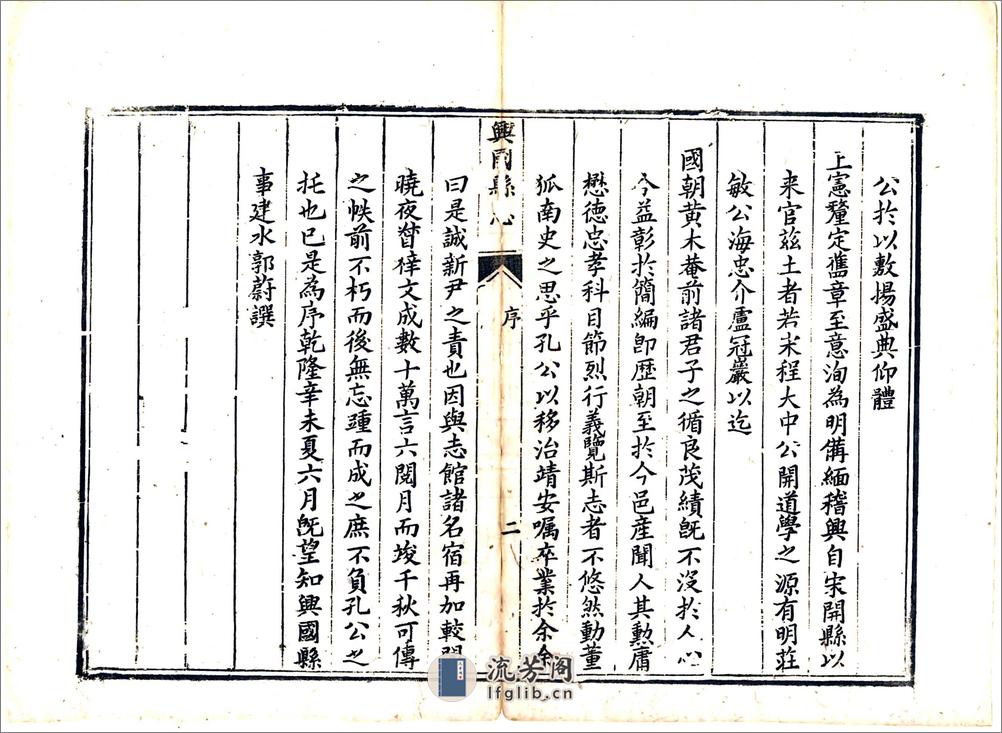 公於以敷揚盛典仰體
上憲釐定舊章至意洵為明備緬稽興自宋開縣以
来官兹土者若宋程大中公開道學之源有明莊
敏公海忠介盧冠巖以迄
國朝黄木菴前諸君子之循良茂績旣不沒於人心
今益彰於簡編卽歷朝至於今邑産聞人其勲庸
懋德忠孝科目節烈行義覽斯志者不悠然動董
狐南史之思乎孔公以移治靖安嘱卒業於余余
興國縣
序
二
曰是誠新尹之責也因與志館諸名宿再加較
曉夜督文成數十萬言六閱月而竣千秋可傳
之帙前不朽而後無忘踵而成之庶不負孔公之
托也已是為序乾隆辛未夏六月旣望知興國縣
事建水郭蔚譔
流芳阁
lfglib.cn